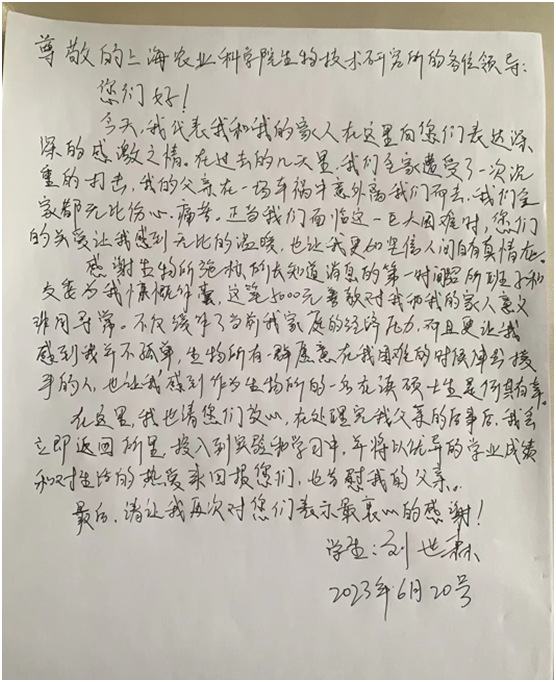 尊敬的上海农业科学院生物技术研究所的各位领导:
您们好!
今天,我代表我和我的家人在这里向您们表达深
深的感激之情。在过去的几天里,我们全家遭受了一次沉
重的打击,我的父亲在一场车祸中意外离我们而去,我们全
家都无比伤心、痛苦。正当我们面临这一巨大困难时,您们
的关爱让我感到无比的温暖,也让我更加坚信人间自有真情在。
感谢生物所施林所长知道消息的第一时间召所班子和
支委为我慷慨解囊,这笔5000元善款对我和我的家人意义
非同寻常。不仅缓解了当前我家庭的经济压力,而且更让我
感到我并不孤单,生物所有一群愿意在我困难的时候伸出援
手的人,也让我感到作为生物所的一名在读硕士生是何其有幸。
在这里,我也请您们放心,在处理完我父亲的后事后,我会
立即返回所里,投入到实验和学习中,并将以优异的学业成绩
和对生活的热爱来回报您们,也告慰我的父亲。
最后,请让我再次对您们表示最衷心的感谢!
学生:刘世森
2023年6月20号